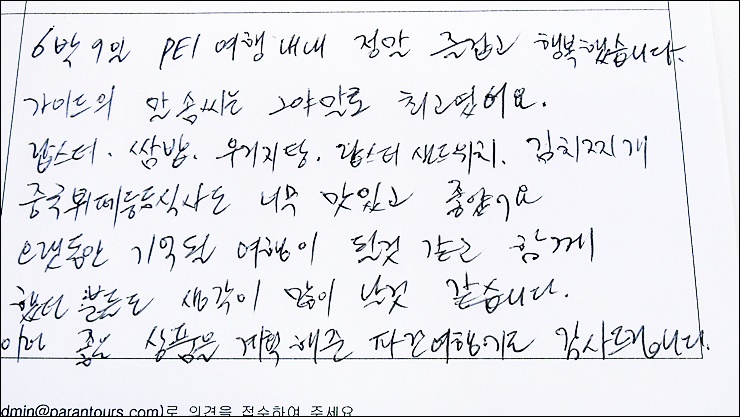 6박 7일 PEI 여행 내내 정말 즐겁고 행복했습니다.
가이드의 말솜씨는 그야말로 최고였어요.
랍스터. 쌈밥. 우거지탕. 랍스터 샌드위치. 김치찌개
중국뷔페등등 식사도 너무 맛있고 좋았어요
오랫동안 기억될 여행이 될것 같고 함께
했던 분들도 생각이 많이 날것 같습니다.
이런 좋은 상품을 계획해준 파란여행에도 감사드립니다.
dmin@parantours.com)로 의견을 접수하여 주세요